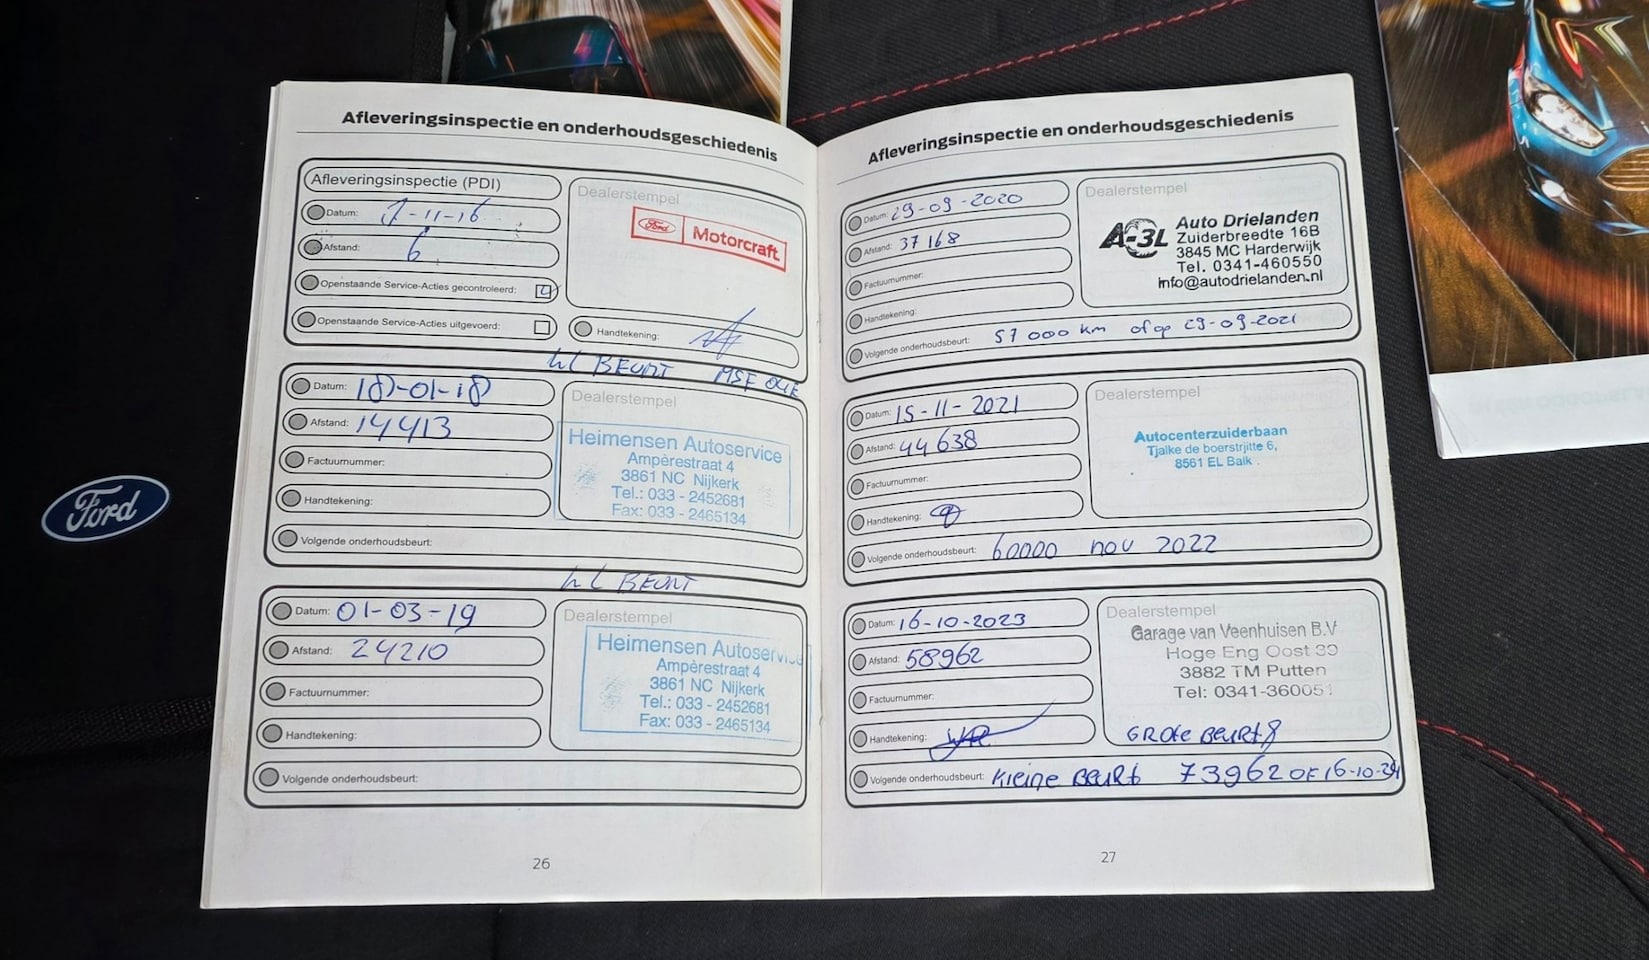 Ford
Afleveringsinspectie en onderhoudsgeschiedenis
Afleveringsinspectie (PDI)
Datum: 7-11-16
Afstand: 6
Openstaande Service-Acties gecontroleerd:
Openstaande Service-Acties uitgevoerd:
Dealerstempel
Ford Motorcraft
Handtekening:
BEURT
Datum: 18-01-18
Afstand: 14413
Factuurnummer:
Handtekening:
Volgende onderhoudsbeurt:
Dealerstempel
Heimensen Autoservice
Ampèrestraat 4
3861 NC Nijkerk
Tel.: 033 - 2452681
Fax: 033 - 2465134
BEURT
Datum: 01-03-19
Afstand: 24210
Factuurnummer:
Handtekening:
Volgende onderhoudsbeurt:
Dealerstempel
Heimensen Autoservice
Ampèrestraat 4
3861 NC Nijkerk
Tel.: 033 - 2452681
Fax: 033 - 2465134
26
Afleveringsinspectie en onderhoudsgeschiedenis
Datum: 29-09-2020
Afstand: 37168
Factuurnummer:
Handtekening:
Volgende onderhoudsbeurt: 57000 km of op 29-09-2021
Dealerstempel
A-3L
Auto Drielanden
Zuiderbreedte 16B
3845 MC Harderwijk
Tel. 0341-460550
info@autodrielanden.nl
Datum: 15-11-2021
Afstand: 44638
Factuurnummer:
Handtekening:
Volgende onderhoudsbeurt: 60000 nov 2022
Dealerstempel
Autocenterzuiderbaan
Tjalke de boerstrjitte 6,
8561 EL Balk
Datum: 16-10-2023
Afstand: 58962
Factuurnummer:
Handtekening:
Volgende onderhoudsbeurt: Kleine Beurt 73962 OF 16-10-24
Dealerstempel
Garage van Veenhuisen B.V
Hoge Eng Oost 39
3882 TM Putten
Tel: 0341-360051
GROte BeuRt
27